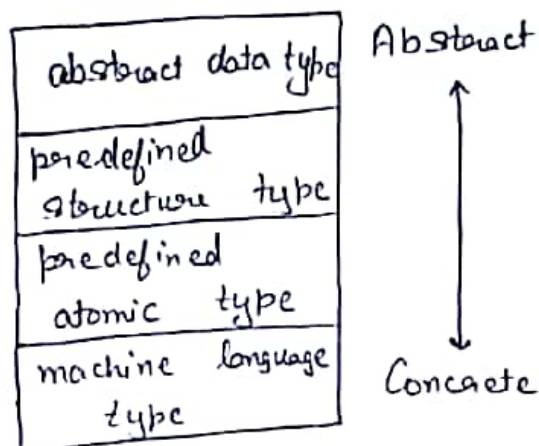 abstract data type
Abstract
predefined
structure type
predefined
atomic type
machine language
type
Concrete